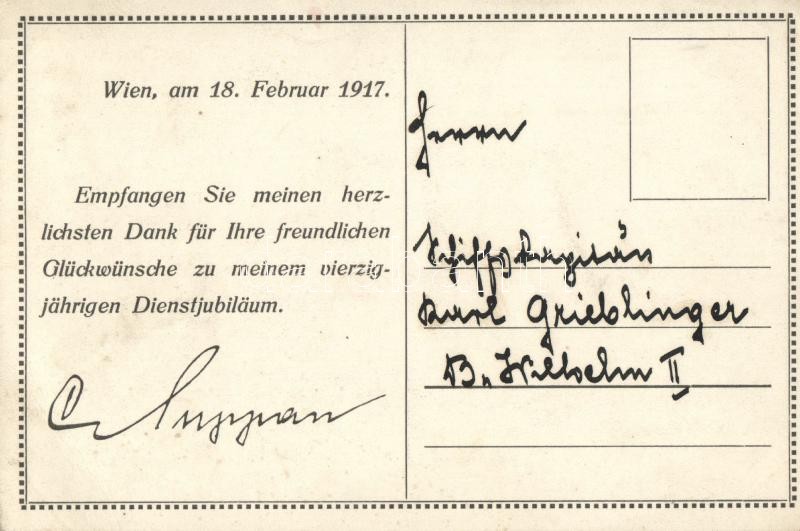 Wien, am 18. Februar 1917.
Empfangen Sie meinen herz-
lichsten Dank für Ihre freundlichen
Glückwünsche zu meinem vierzig-
jährigen Dienstjubiläum.
C. Suppan
Herrn
Schiffskapitän
Karl Grieblinger
B. Wilhelm II